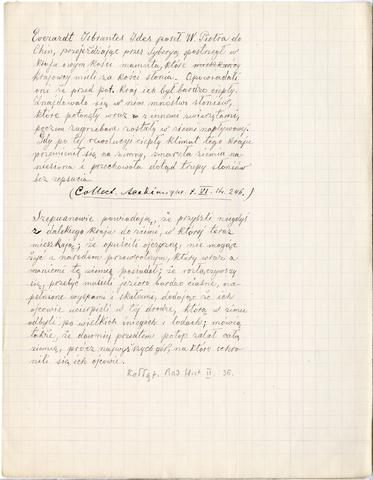 Everardt Isbrantes Ides poseł W. Piotra do
Chin, przejeżdżając przez Syberyą postrzegł w
kraju owym kości mamuta, które mieszkańcy
krajowcy mieli za kości słonia. Opowiadali
oni że przed pot. kraj ich był bardzo ciepły.
Znajdowało się w nim mnóstwo słoniów,
które potonęły wraz z innemi zwierzętami,
poczem zagrzebane zostały w ziemi napływowej.
Gdy po tej rewolucyi ciepły klimat tego kraju
przemienił się na zimny, zmarzła ziemia na
niesiona i przechowała dotąd trupy słoniów
bez zepsucia.
(Collect. Academique. t. VI. str. 246.)
Szepuanowie powiadają, że przyszli niegdyś
z dalekiego kraju do ziemi, w której teraz
mieszkają; że opuścili ojczyznę, nie mogąc
żyć z narodem przewrotnym, który wraz z
niemi tę ziemię posiadał; że rozłączywszy
się, przebyć musieli jezioro bardzo ciaśne, na-
pełnione wyspami i skałami, dodając że ich
ojcowie ucierpieli w tej drodze, którą w zimie
odbyli po wielkich śniegach i lodach; mówią
także, że dawniej przedtem potop zalał całą
ziemię, prócz najwyższych gór, na które schro-
nili się ich ojcowie.
Kołłąt. Bad. Hist. II. 36.